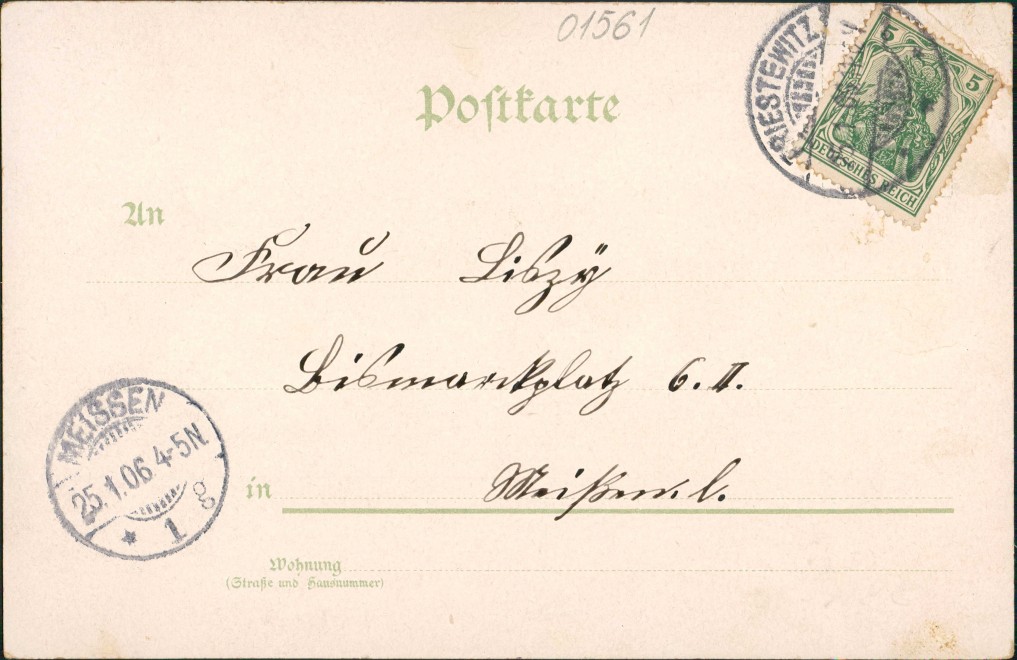 01561
Postkarte
PRIESTEWITZ
5 5
DEUTSCHES REICH
An
Frau Liszy
Bismarckplatz 6. II.
in Meißen. l.
MEISSEN
25.1.06 4-5N.
* 1 g
Wohnung
(Straße und Hausnummer)